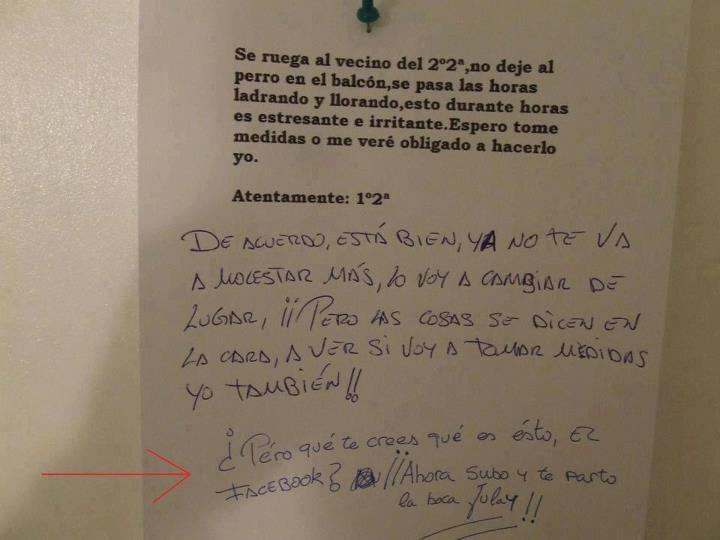 Se ruega al vecino del 2º2ª,no deje al
perro en el balcón,se pasa las horas
ladrando y llorando,esto durante horas
es estresante e irritante.Espero tome
medidas o me veré obligado a hacerlo
yo.
Atentamente: 1º2ª
DE ACUERDO, ESTÁ BIEN, YA NO TE VA
A MOLESTAR MÁS, LO VOY A CAMBIAR DE
LUGAR, ¡¡PERO LAS COSAS SE DICEN EN
LA CARA, A VER SI VOY A TOMAR MEDIDAS
YO TAMBIÉN!!
¿¡Péro qué te crees qué es ésto, EL
FACEBOOK? ¡¡Ahora subo y te parto
la boca Julay!!